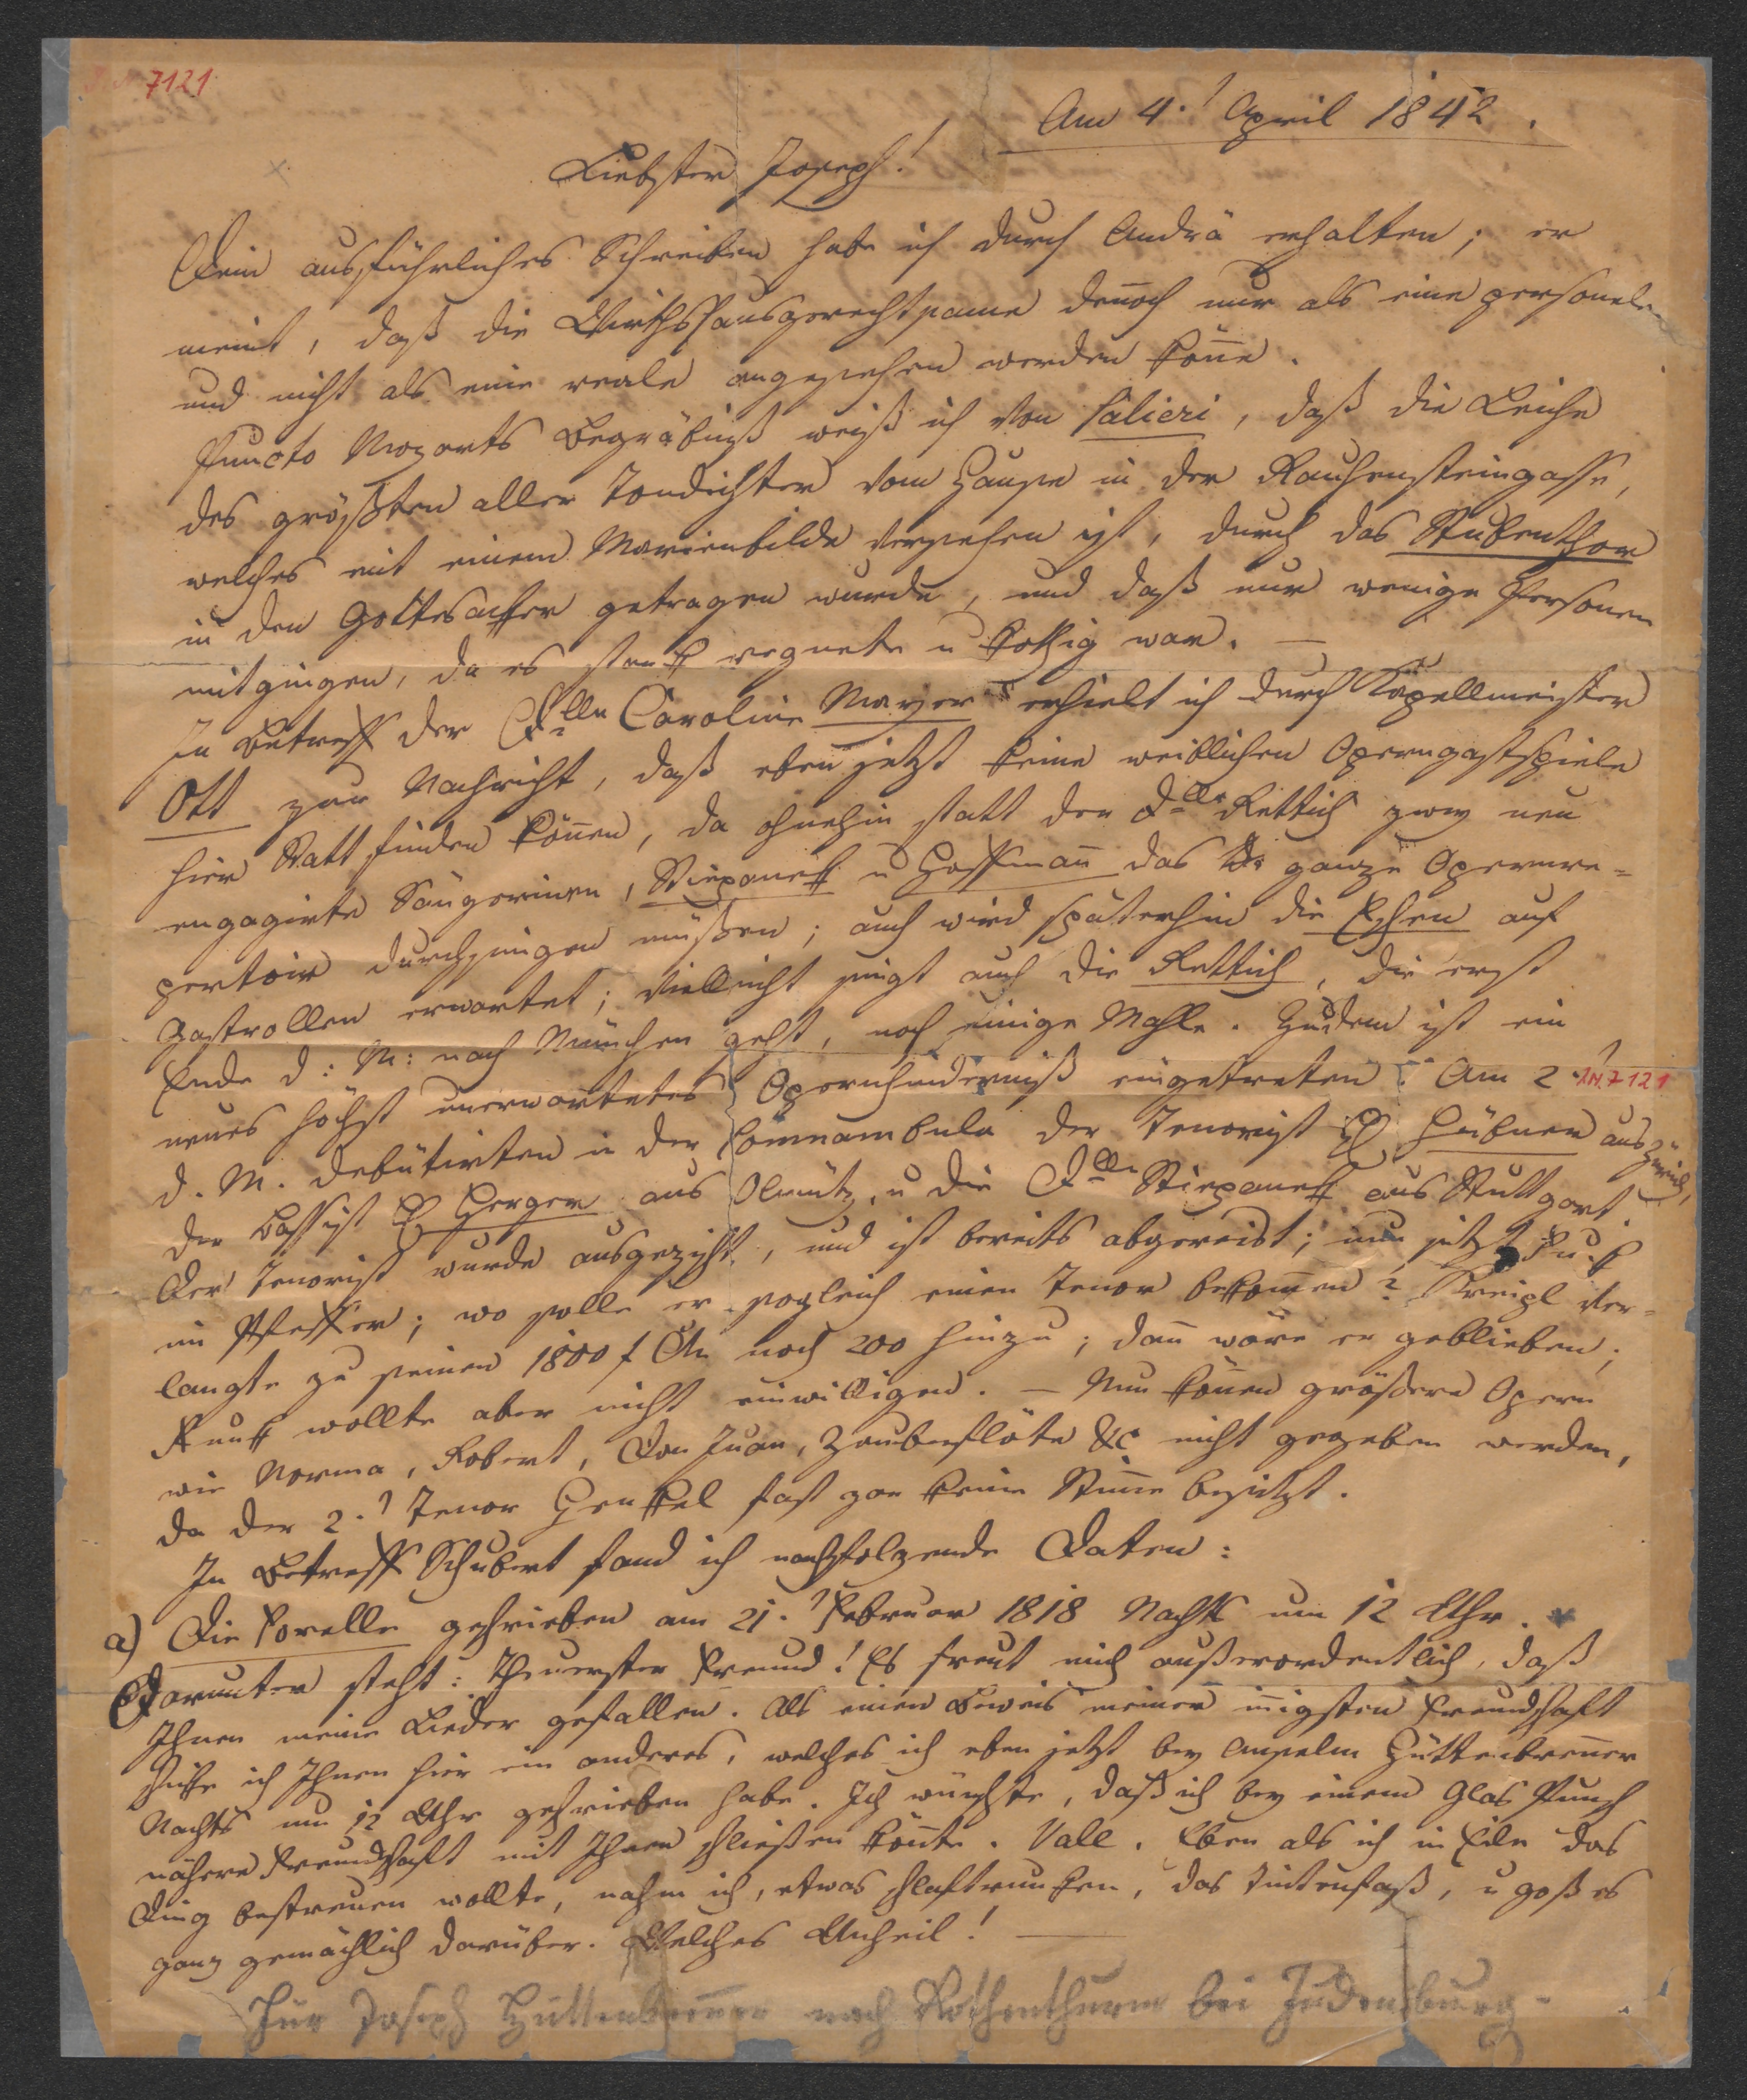 7121
Am 4.t April 1842.
Liebster Joseph!
Dein ausführliches Schreiben habe ich durch Andrä erhalten; er
meint, daß die Wirthshausgerechtsame deñoch nur als eine personele
und nicht als eine reale angesehen werden köñe.
Puncto Mozarts Begräbniß weiß ich von Salieri, daß die Leiche
des größten aller Tondichter vom Hause in der Rauhensteingasse,
welches mit einem Marienbilde versehen ist, durch das Stubenthor
in den Gottesacker getragen wurde, und daß nur wenige Personen
mitgingen, da es stark regnete u kothig war. —
In Betreff der Dlle Caroline Mayer erhielt ich durch Kapellmeister
Ott zur Nachricht, daß eben jetzt keine weiblichen Operngastspiele
hier Statt finden köñen, da ohnehin statt der Dlle Rettich zwey neu
engagirte Sängeriñen, Stepaneck u Hoffmañ das ganze Opernre=
pertoir durchsingen müßen; auch wird späterhin die auf
Gastrollen erwartet; vielleicht singt auch die Rettich, die erst
Ende d: M: nach München geht, noch einige Mahle. Zudem ist ein
neues höchst unerwartetes Opernhinderniß eingetreten: Am 2.t
IN. 7121
d. M. debütirten in der Somnambula der Tenorist H Hübner aus Zürich,
der Bassist H Herger aus Olmütz, u die Dlle Stepaneck aus Stuttgart.
Der Tenorist wurde ausgezischt, und ist bereits abgereist; nun sitzt Funk
im Pfeffer; wo solle er sogleich einen Tenor bekom̃en? Kreipl ver=
langte zu seinen 1800 f CM noch 200 hinzu; dañ wäre er geblieben;
Funk wollte aber nicht einwilligen. — Nun köñen größere Opern
wie Norma, Robert, Don Juan, Zauberflöte &c nicht gegeben werden,
da der 2.t Tenor Henkel fast gar keine Stim̃e besitzt.
In Betreff Schubert fand ich nachfolgende Daten:
a) Die Forelle geschrieben am 21.t Februar 1818 Nachts um 12 Uhr.
Darunter steht: Theuerster Freund! Es freut mich außerordentlich, daß
Ihnen meine Lieder gefallen. Als einen Beweis meiner iñigsten Freundschaft
schicke ich Ihnen hier ein anderes, welches ich eben jetzt bey Anselm Hüttenbreñer
Nachts um 12 Uhr geschrieben habe. Ich wünschte, daß ich bey einem Glas Punsch
nähere Freundschaft mit Ihnen schließen köñte. Vale. Eben als ich in Eile das
Ding bestreuen wollte, nahm ich, etwas schlaftrunken, das Tintenfaß, u goß es
ganz gemächlich darüber. Welches Unheil! —
Für Joseph Hüttenbreñer nach Rothenthurm bei Judenburg.